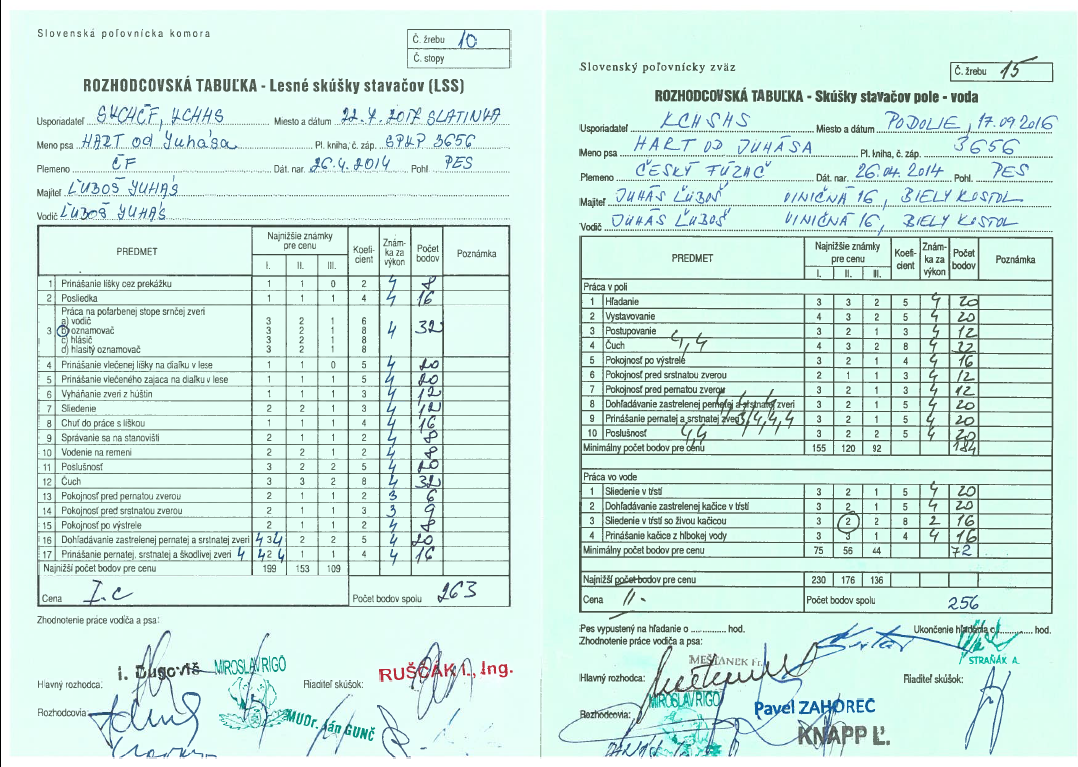 Slovenská poľovnícka komora
Č. žrebu 10
Č. stopy
ROZHODCOVSKÁ TABUĽKA - Lesné skúšky stavačov (LSS)
Usporiadateľ SKCHČF, KCHHS Miesto a dátum 22.7.2017 SLATINKA
Meno psa HART od Juhása Pl. kniha, č. záp. SPKP 3656
Plemeno ČF Dát. nar. 26.4.2014 Pohl PES
Majiteľ ĽUBOŠ JUHÁS
Vodič ĽUBOŠ JUHÁS
PREDMET Najnižšie známky pre cenu I. II. III. Koefi-cient Znám-ka za výkon Počet bodov Poznámka
1 Prinášanie líšky cez prekážku 1 1 0 2 4 8
2 Posliedka 1 1 1 4 4 16
3 Práca na pofarbenej stope srnčej zveri
a) vodič 3 2 1 6
b) oznamovač 3 2 1 8 4 32
c) hlásič 3 2 1 8
d) hlasitý oznamovač 3 2 1 8
4 Prinášanie vlečenej líšky na diaľku v lese 1 1 0 5 4 20
5 Prinášanie vlečeného zajaca na diaľku v lese 1 1 1 5 4 20
6 Vyháňanie zveri z húštin 1 1 1 3 4 12
7 Sliedenie 2 2 1 3 4 12
8 Chuť do práce s líškou 1 1 1 4 4 16
9 Správanie sa na stanovišti 2 1 1 2 4 8
10 Vodenie na remeni 2 2 1 2 4 8
11 Poslušnosť 3 2 2 5 4 20
12 Čuch 3 3 2 8 4 32
13 Pokojnosť pred pernatou zverou 2 1 1 2 3 6
14 Pokojnosť pred srstnatou zverou 2 1 1 3 3 9
15 Pokojnosť po výstrele 2 1 1 2 4 8
16 Dohľadávanie zastrelenej pernatej a srstnatej zveri 4 3 4 2 2 5 4 20
17 Prinášanie pernatej, srstnatej a škodlivej zveri 4 4 2 4 1 1 4 4 16
Najnižší počet bodov pre cenu 199 153 109
Cena I.c Počet bodov spolu 263
Zhodnotenie práce vodiča a psa:
i. Dugovič MIROSLAV RIGO RUŠČÁK I., Ing.
Hlavný rozhodca: Riaditeľ skúšok:
Rozhodcovia: MUDr. Ján GUNČ
Slovenský poľovnícky zväz
Č. žrebu 15
ROZHODCOVSKÁ TABUĽKA - Skúšky stavačov pole - voda
Usporiadateľ KCHSHS Miesto a dátum PODOLIE, 17.09.2016
Meno psa HART OD JUHÁSA Pl. kniha, č. záp. 3656
Plemeno ČESKÝ FÚZAČ Dát. nar. 26.04.2014 Pohl. PES
Majiteľ JUHÁS ĽUBOŠ VINIČNÁ 16, BIELY KOSTOL
Vodič JUHÁS ĽUBOŠ VINIČNÁ 16, BIELY KOSTOL
PREDMET Najnižšie známky pre cenu I. II. III. Koefi-cient Znám-ka za výkon Počet bodov Poznámka
Práca v poli
1 Hľadanie 3 3 2 5 4 20
2 Vystavovanie 4 3 2 5 4 20
3 Postupovanie 3 2 1 3 4 12
4 Čuch 4,4 4 3 2 8 4 32
5 Pokojnosť po výstrele 3 2 1 4 4 16
6 Pokojnosť pred srstnatou zverou 2 1 1 3 4 12
7 Pokojnosť pred pernatou zverou 3 2 1 3 4 12
8 Dohľadávanie zastrelenej pernatej a srstnatej zveri 3 2 1 5 4 20
9 Prinášanie pernatej a srstnatej zveri 4,4,4,4 3 2 1 5 4 20
10 Poslušnosť 4 4 3 2 2 5 4 20
Minimálny počet bodov pre cenu 155 120 92 184
Práca vo vode
1 Sliedenie v tŕstí 3 2 1 5 4 20
2 Dohľadávanie zastrelenej kačice v tŕstí 3 2 1 5 4 20
3 Sliedenie v tŕstí so živou kačicou 3 2 2 8 2 16
4 Prinášanie kačice z hlbokej vody 3 3 1 4 4 16
Minimálny počet bodov pre cenu 75 56 44 72
Najnižší počet bodov pre cenu 230 176 136
Cena II. Počet bodov spolu 256
Pes vypustený na hľadanie o ............ hod. Ukončenie hľadania o ............ hod.
Zhodnotenie práce vodiča a psa:
MEŠŤANEK Fr. STRAŇÁK A.
Hlavný rozhodca: Riaditeľ skúšok:
MIROSLAV RIGO
Rozhodcovia: Pavel ZÁHOREC
KNAPP Ľ.